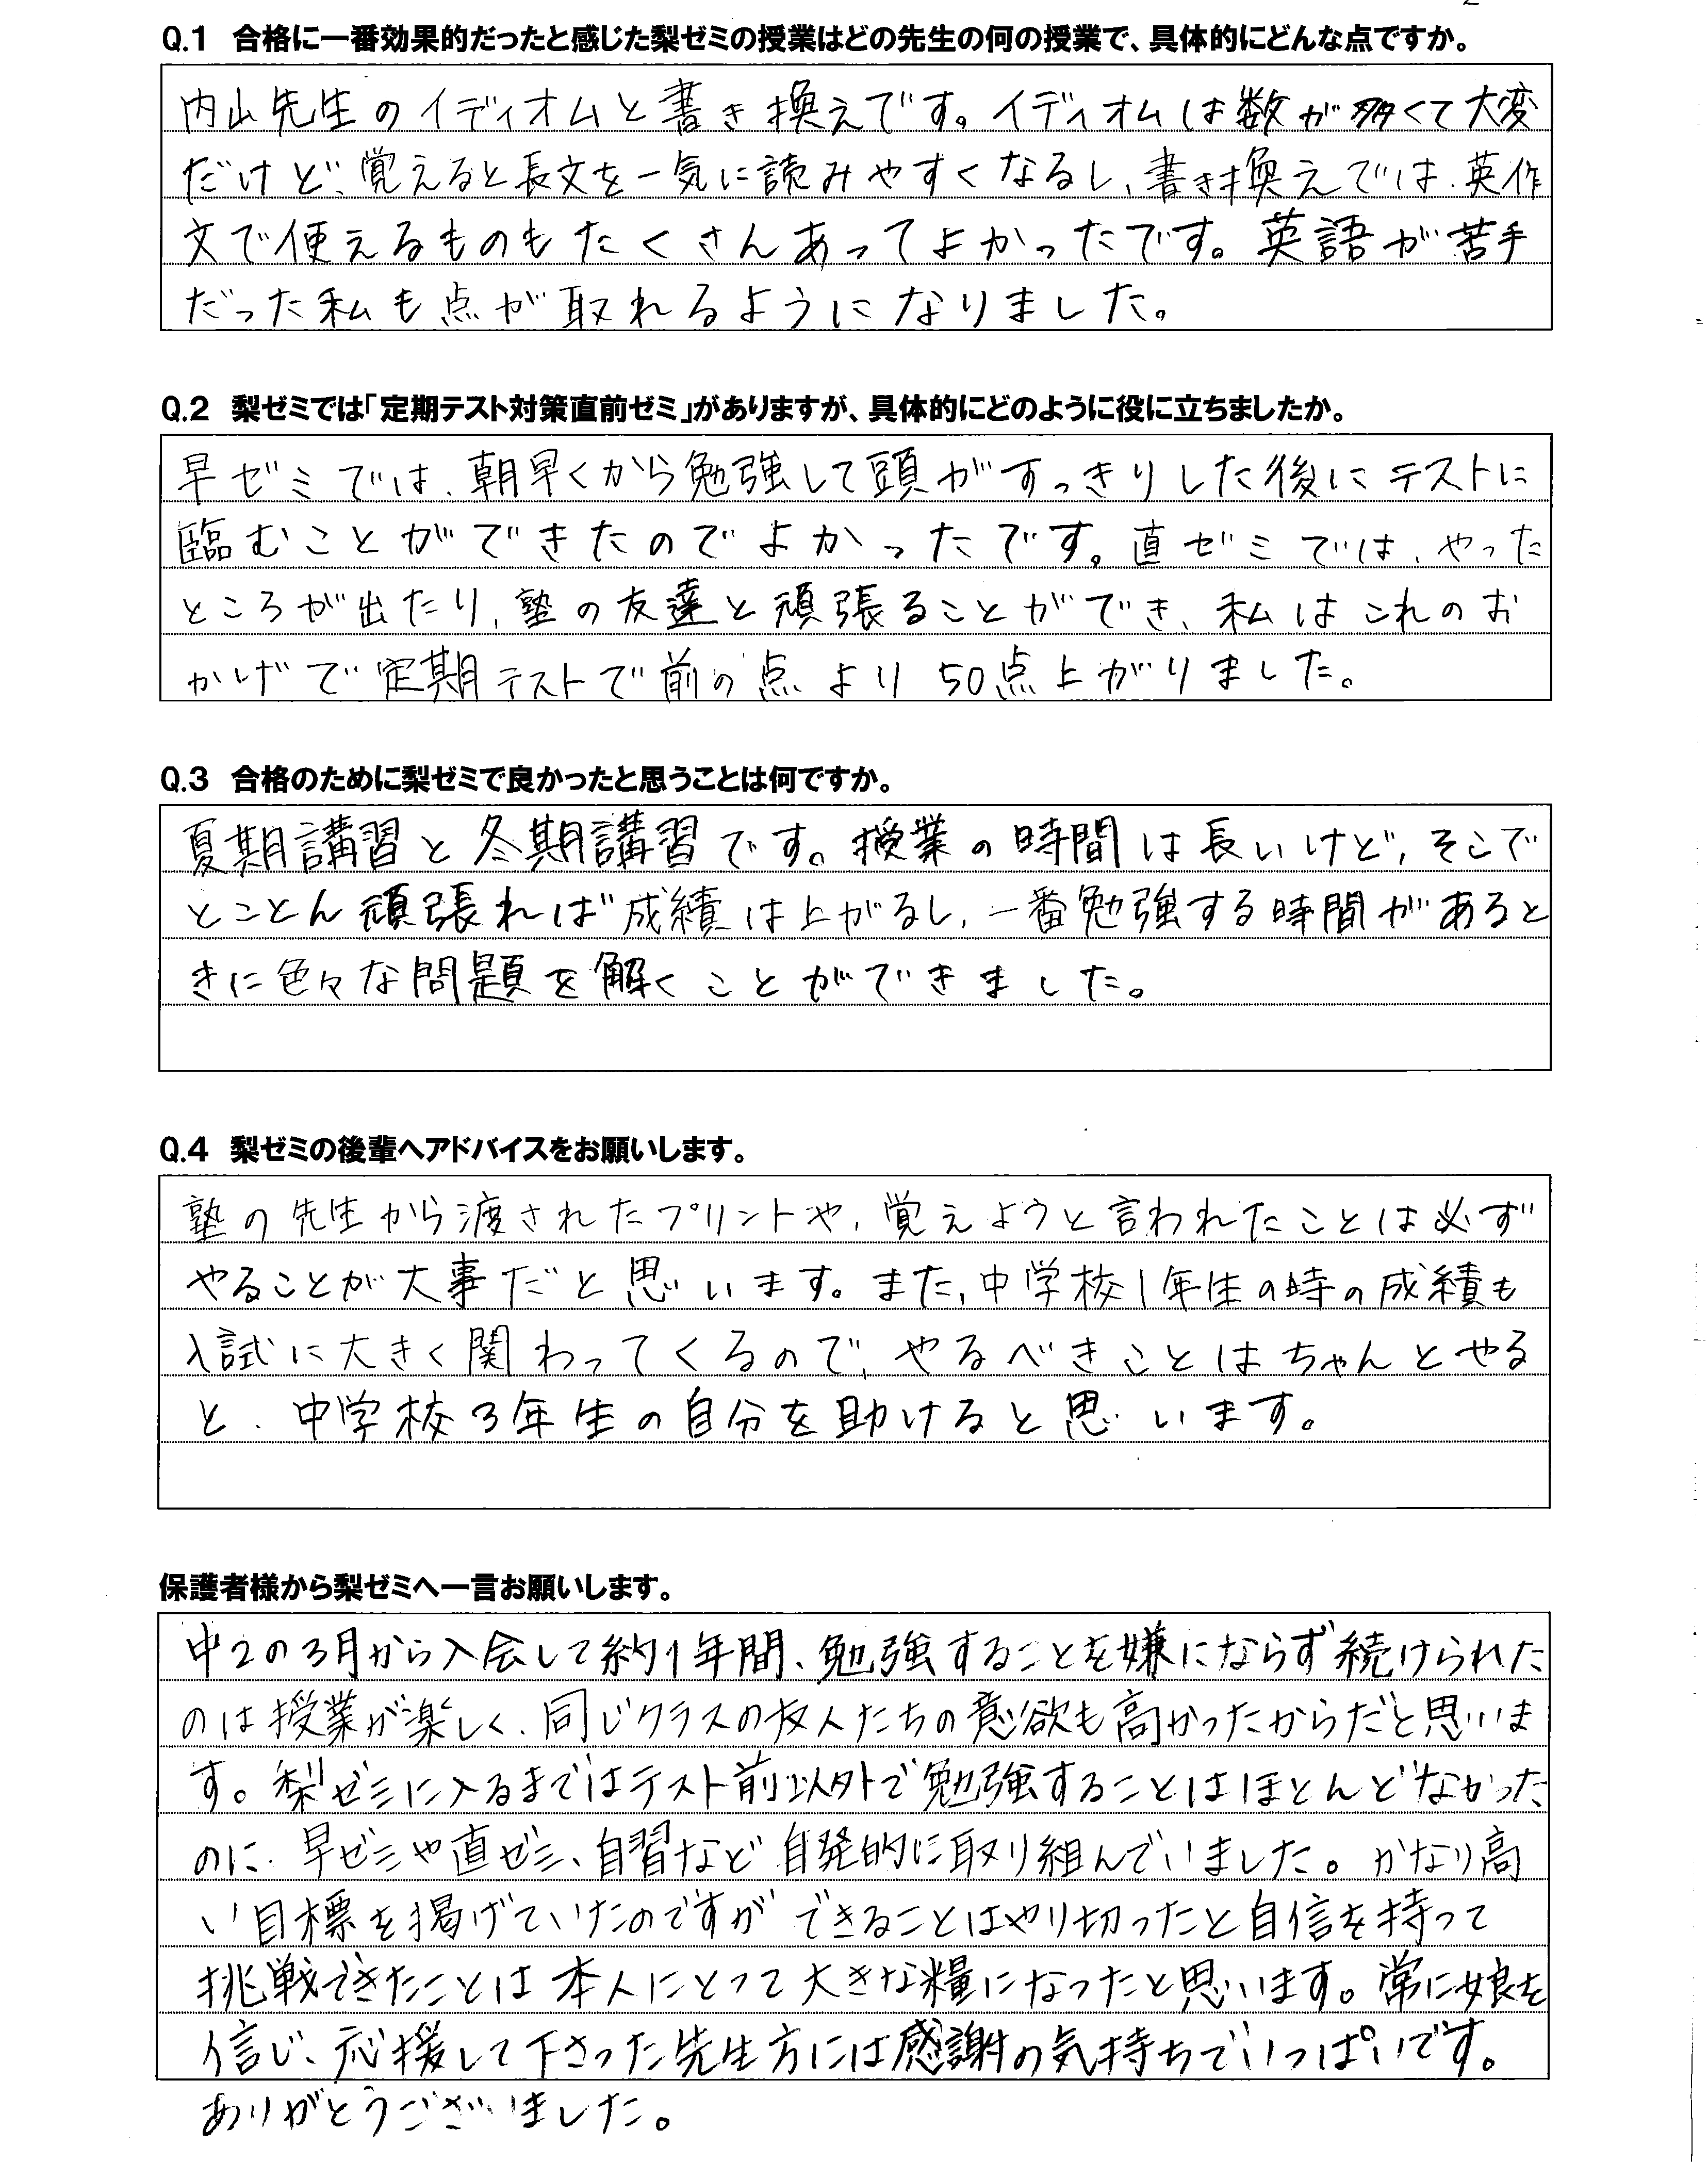 Q.1 合格に一番効果的だったと感じた梨ゼミの授業はどの先生の何の授業で、具体的にどんな点ですか。
内山先生のイディオムと書き換えです。イディオムは数が多くて大変
だけど、覚えると長文を一気に読みやすくなるし、書き換えでは、英作
文で使えるものもたくさんあってよかったです。英語が苦手
だった私も点が取れるようになりました。
Q.2 梨ゼミでは「定期テスト対策直前ゼミ」がありますが、具体的にどのように役に立ちましたか。
早ゼミでは、朝早くから勉強して頭がすっきりした後にテストに
臨むことができたのでよかったです。直ゼミでは、やった
ところが出たり、塾の友達と頑張ることができ、私はこれのお
かげで定期テストで前の点より50点上がりました。
Q.3 合格のために梨ゼミで良かったと思うことは何ですか。
夏期講習と冬期講習です。授業の時間は長いけど、そこで
とことん頑張れば成績は上がるし、一番勉強する時間があると
きに色々な問題を解くことができました。
Q.4 梨ゼミの後輩へアドバイスをお願いします。
塾の先生から渡されたプリントや、覚えようと言われたことは必ず
やることが大事だと思います。また、中学校1年生の時の成績も
入試に大きく関わってくるので、やるべきことはちゃんとやる
と、中学校3年生の自分を助けると思います。
保護者様から梨ゼミへ一言お願いします。
中2の3月から入会して約1年間、勉強することを嫌にならず続けられた
のは授業が楽しく、同じクラスの友人たちの意欲も高かったからだと思いま
す。梨ゼミに入るまではテスト前以外で勉強することはほとんどなかった
のに、早ゼミや直ゼミ、自習など自発的に取り組んでいました。かなり高
い目標を掲げていたのですができることはやり切ったと自信を持って
挑戦できたことは本人にとって大きな糧になったと思います。常に娘を
信じ、応援して下さった先生方には感謝の気持ちでいっぱいです。
ありがとうございました。